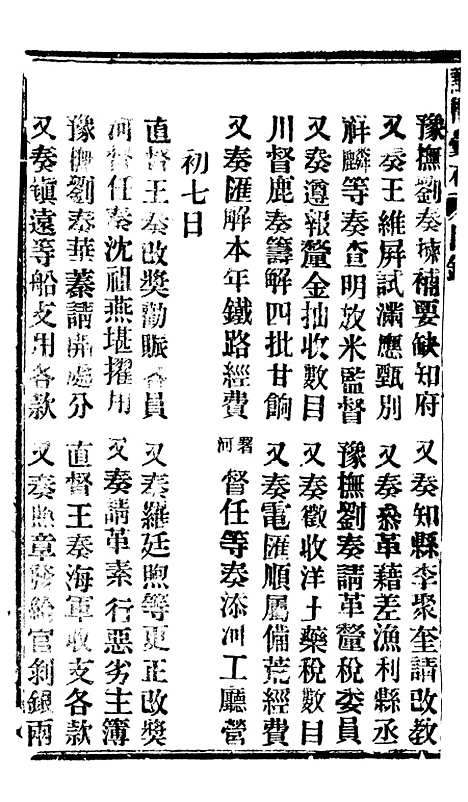 豫撫劉奏揀補要缺知府　又奏知縣李聚奎請改教
又奏王維屏試滿應甄別　又奏叅革藉差漁利縣丞
祥麟等奏查明放米監督　豫撫劉奏請革釐稅委員
又奏遵報釐金抽收數目　又奏徵收洋土藥稅數目
川督鹿奏籌解四批甘餉　又奏電匯順屬備荒經費
又奏匯解本年鐵路經費　署河督任等奏添河工廳營
初七日
直督王奏改獎勸賑委員　又奏羅廷煦等更正改獎
河督任奏沈祖燕堪擢用　又奏請革素行惡劣主簿
豫撫劉奏華蓁請開處分　直督王奏海軍收支各款
又奏鎮遠等船支用各款　又奏照章發給官剝銀兩